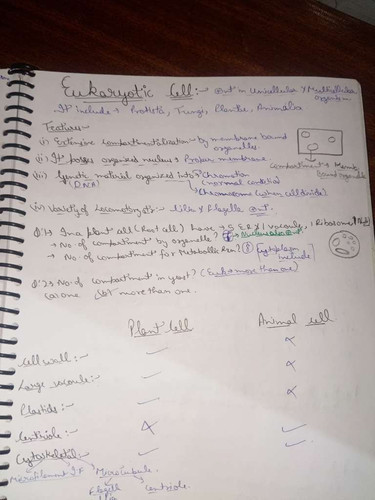 Eukaryotic Cell:- Out in Unicellular & Multicellular
organism
It include → Protista, Fungi, Plantae, Animalia
Features~
(i) Extensive compartmentalization by membrane bound
organelles
(ii) It posses organized nucleus → Proper membrane.
(iii) Genetic material organized into → Chromatin
(DNA) (normal condition)
Chromosome (when cell divide)
(iv) Variety of locomotory str:- Cilia & Flagella
Q:1s In a plant cell (Root cell) have → S.E.R, 1 vacuole, 1 Ribosome,
→ No of compartment by organelle?
→ No. of compartment for Metabolic Rxn? [Cytoplasm
include]
Q:2s No. of compartment in yeast? (Euk → more than one)
(a) one (b) more than one.
Plant Cell Animal cell
Cell wall:~ ✓ ×
Large vacuole:~ ✓ ×
Plastids:~ ✓ ×
Centriole:~ × ✓
Cytoskeletal:~ ✓ ✓
Microfilament I.F Microtubule
Centriole.